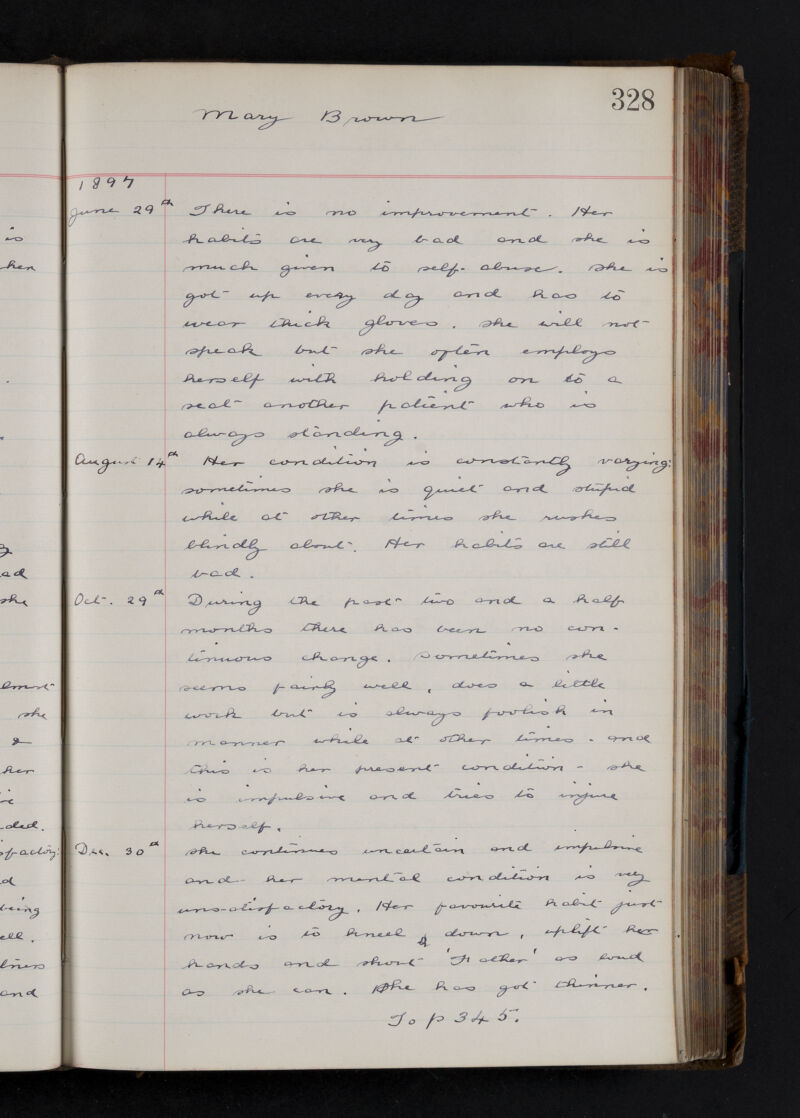 328
Mary Brown
1897
June 29th There is no improvement. Her
habits are very bad and she is
much given to self-abuse. She is
got up every day and has to
wear thick gloves. She will not
speak but she often employs
herself with holding on to a
seat another patient who is
always standing.
August 14th Her condition is constantly varying:
sometimes she is quiet and stupid
while at other times she rushes
blindly about. Her habits are still
bad.
Oct. 29th During the past two and a half
months there has been no con-
tinuous change. Sometimes she
seems fairly well, does a little
work but is always foolish in
manner while at other times - and
this is her present condition - she
is impulsive and tries to injure
herself.
Dec. 30th She continues uncertain and impulsive
and her mental condition is very
unsatisfactory. Her favourite habit just
now is to kneel down, uplift her
hands and shout 'Father' as loud
as she can. She has got thinner.
To p 345.
is
her
ad
she
almost
she
&
her
ded.
sfactory:
d
being
ell.
and